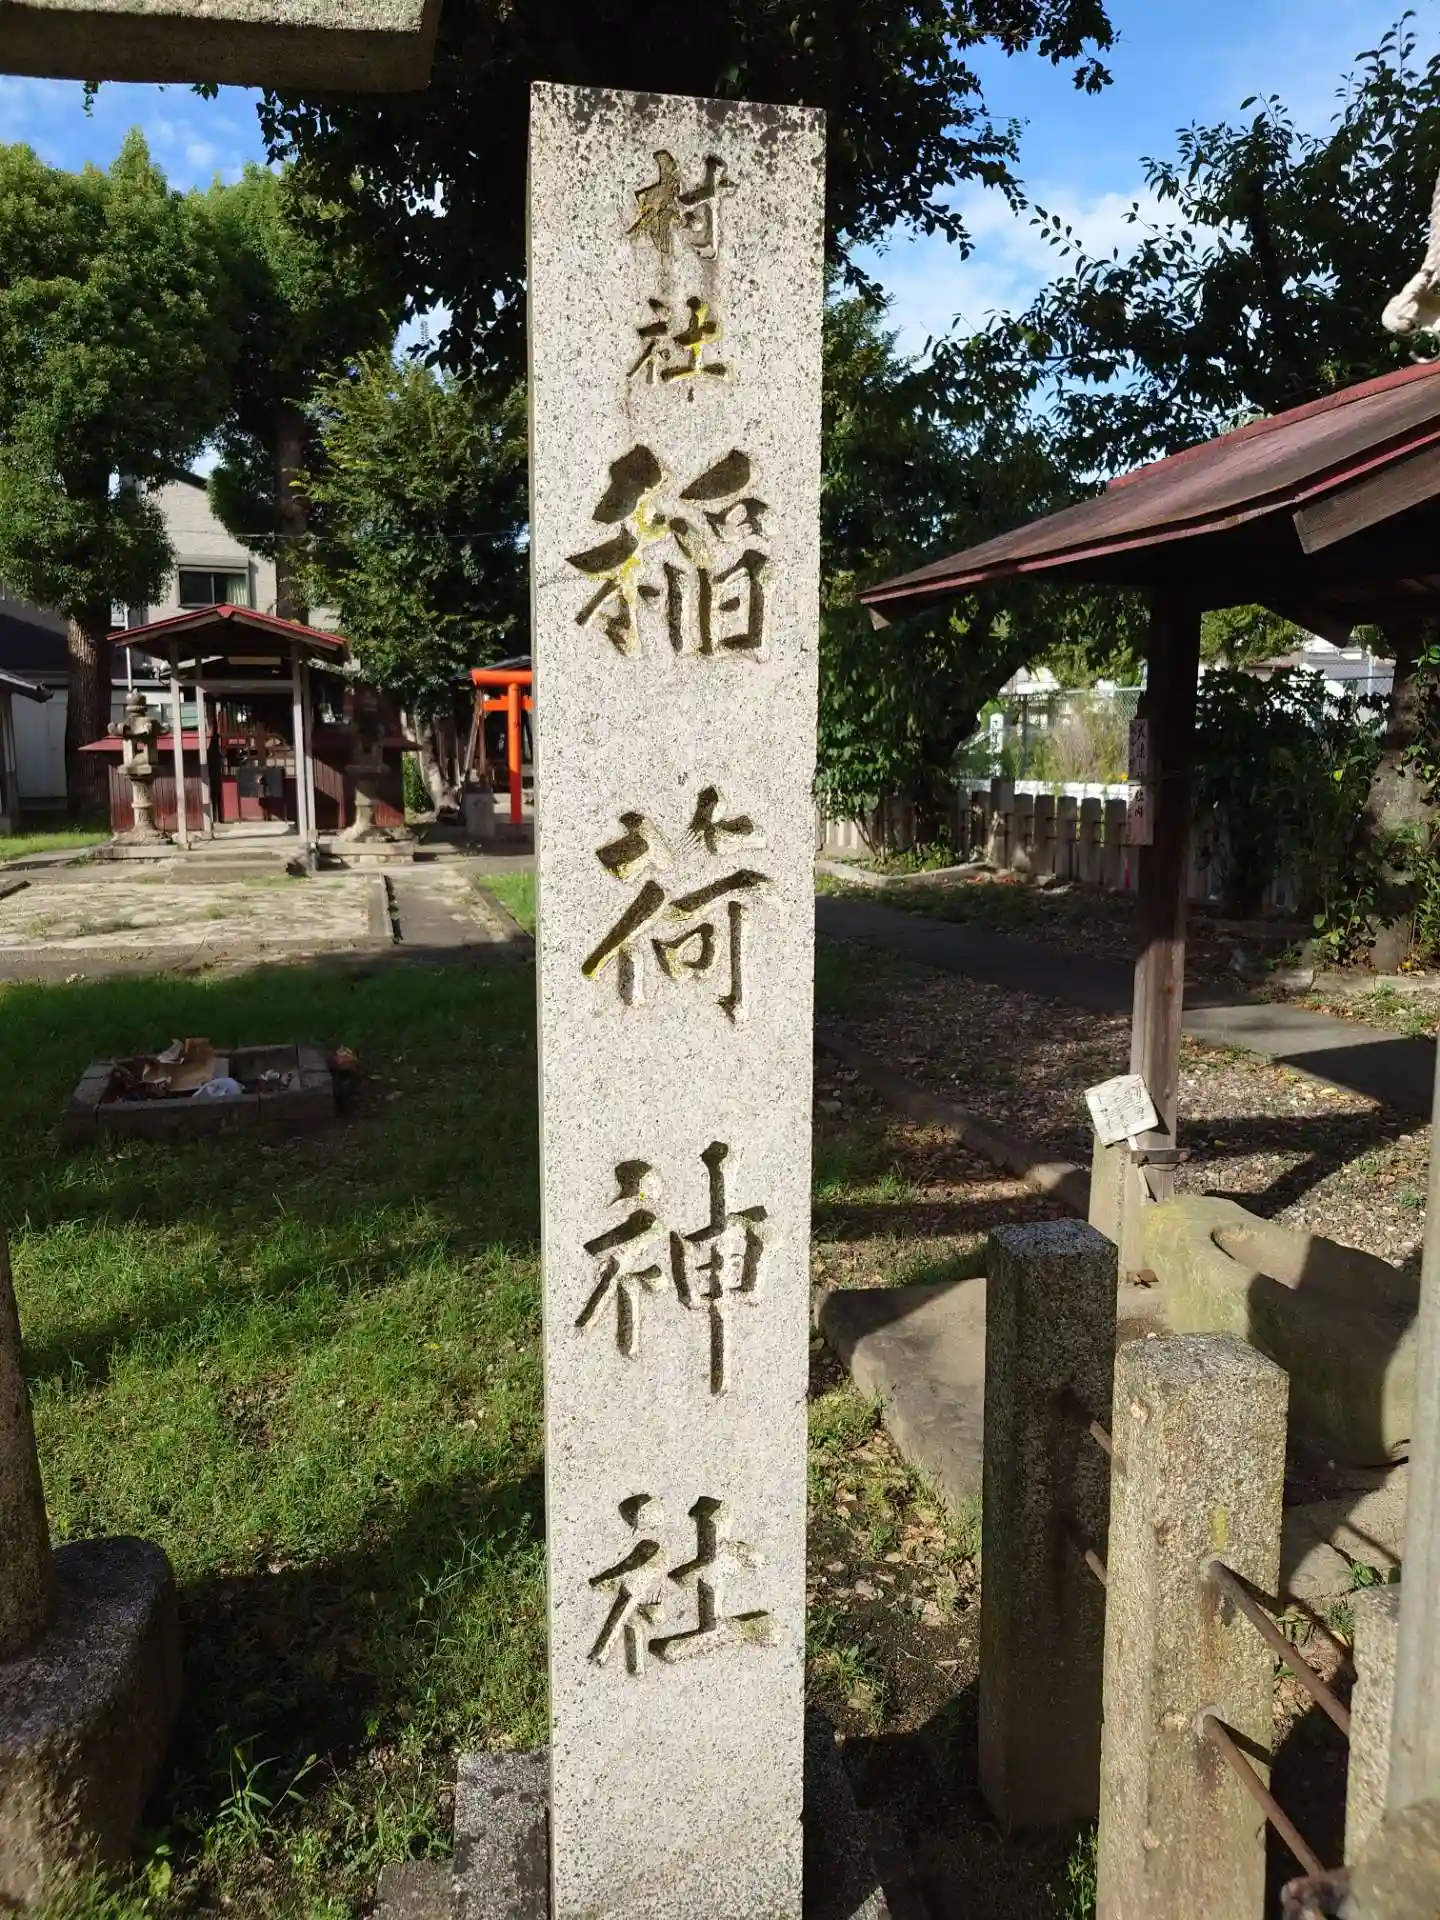 村社 稲荷神社